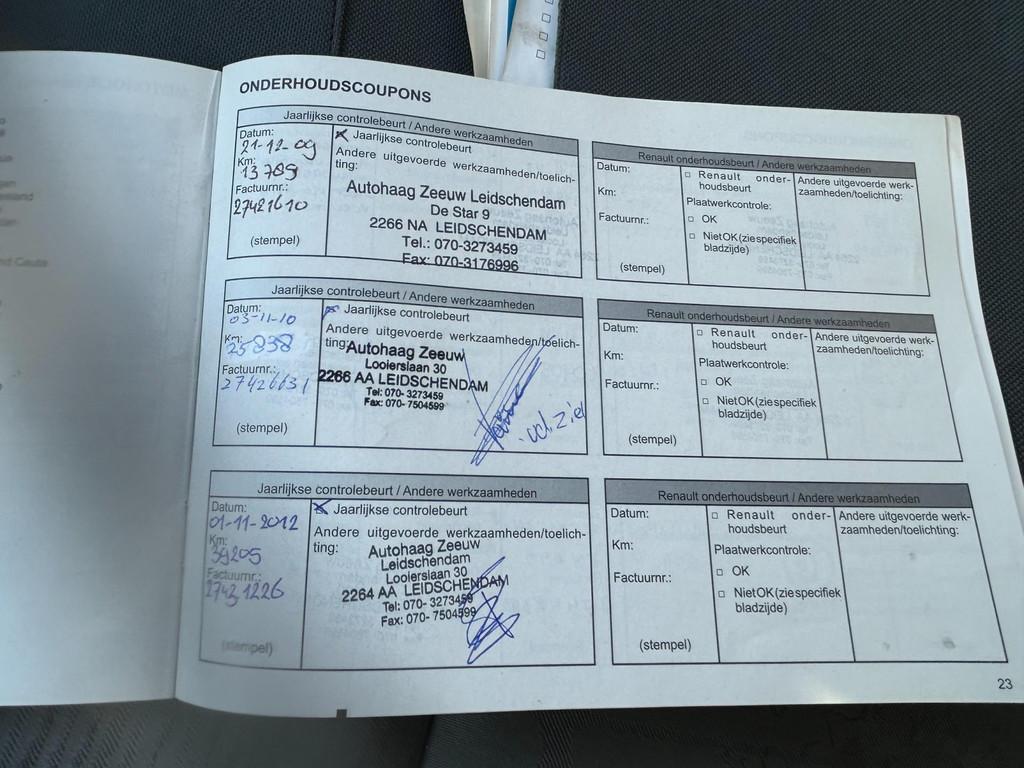 ONDERHOUDSCOUPONS
Jaarlijkse controlebeurt / Andere werkzaamheden
Datum:
21-12-09
Km:
13789
Factuurnr.:
27421610
(stempel)
Jaarlijkse controlebeurt
Andere uitgevoerde werkzaamheden/toelich-
ting:
Autohaag Zeeuw Leidschendam
De Star 9
2266 NA LEIDSCHENDAM
Tel.: 070-3273459
Fax: 070-3176996
Renault onderhoudsbeurt / Andere werkzaamheden
Datum:
Km:
Factuurnr.:
(stempel)
Renault onder-
houdsbeurt
Plaatwerkcontrole:
OK
Niet OK (zie specifiek
bladzijde)
Andere uitgevoerde werk-
zaamheden/toelichting:
Jaarlijkse controlebeurt / Andere werkzaamheden
Datum:
03-11-10
Km:
25838
Factuurnr.:
27426631
(stempel)
Jaarlijkse controlebeurt
Andere uitgevoerde werkzaamheden/toelich-
ting:
Autohaag Zeeuw
Looierslaan 30
2266 AA LEIDSCHENDAM
Tel: 070- 3273459
Fax: 070- 7504599
Renault onderhoudsbeurt / Andere werkzaamheden
Datum:
Km:
Factuurnr.:
(stempel)
Renault onder-
houdsbeurt
Plaatwerkcontrole:
OK
Niet OK (zie specifiek
bladzijde)
Andere uitgevoerde werk-
zaamheden/toelichting:
Jaarlijkse controlebeurt / Andere werkzaamheden
Datum:
01-11-2012
Km:
39205
Factuurnr.:
27431226
(stempel)
Jaarlijkse controlebeurt
Andere uitgevoerde werkzaamheden/toelich-
ting:
Autohaag Zeeuw
Leidschendam
Looierslaan 30
2264 AA LEIDSCHENDAM
Tel: 070- 3273459
Fax: 070- 7504599
Renault onderhoudsbeurt / Andere werkzaamheden
Datum:
Km:
Factuurnr.:
(stempel)
Renault onder-
houdsbeurt
Plaatwerkcontrole:
OK
Niet OK (zie specifiek
bladzijde)
Andere uitgevoerde werk-
zaamheden/toelichting:
23